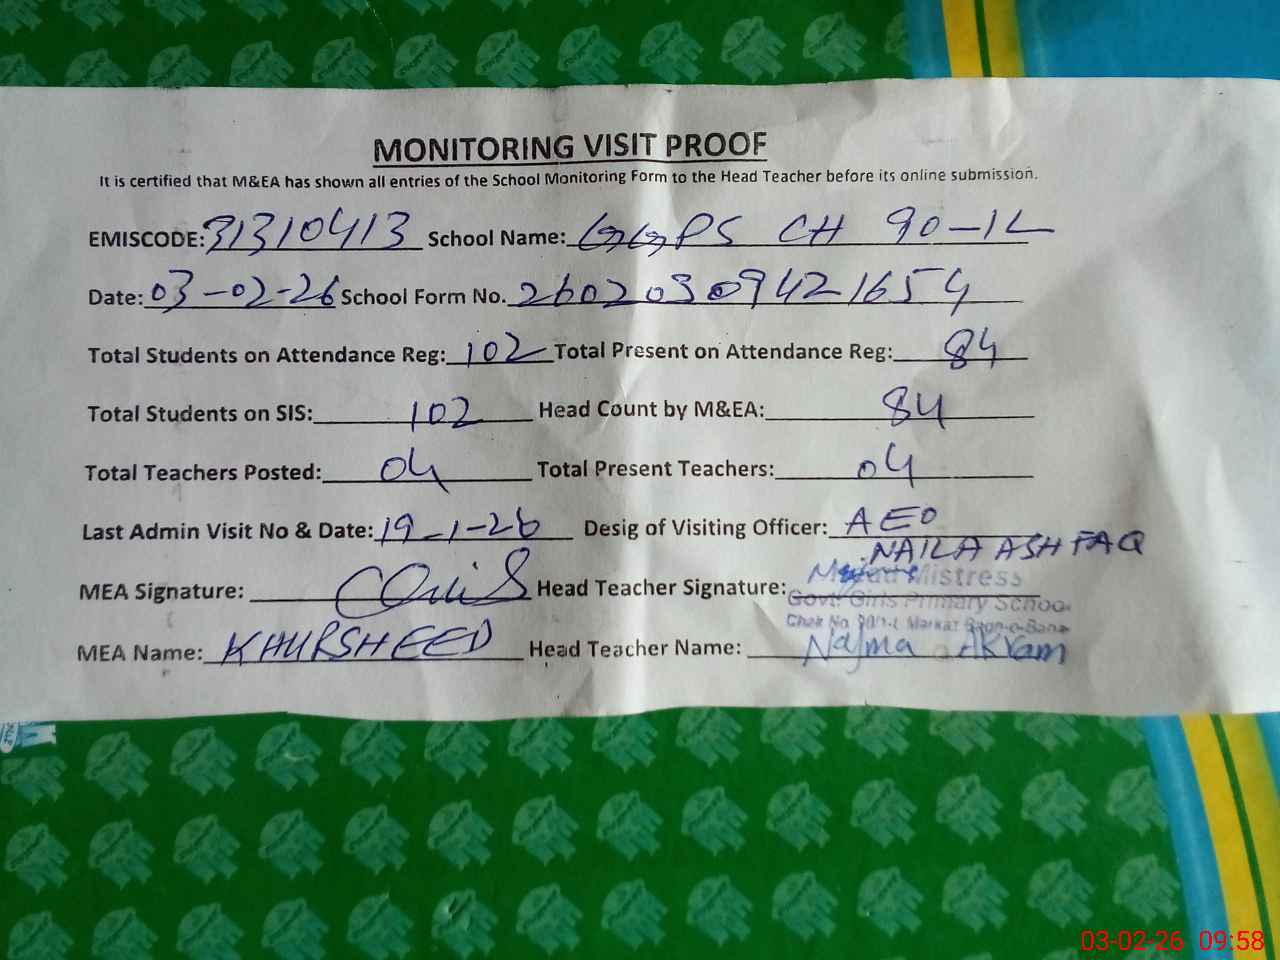 MONITORING VISIT PROOF
It is certified that M&EA has shown all entries of the School Monitoring Form to the Head Teacher before its online submission.
EMISCODE: 31310413 School Name: GGPS CH 90-1L
Date: 03-02-26 School Form No. 26020309421654
Total Students on Attendance Reg: 102 Total Present on Attendance Reg: 84
Total Students on SIS: 102 Head Count by M&EA: 84
Total Teachers Posted: 04 Total Present Teachers: 04
Last Admin Visit No & Date: 19-1-26 Desig of Visiting Officer: AEO
NAILA ASHFAQ
MEA Signature: Head Teacher Signature: Mistress
Govt: Girls Primary School
Chak No
MEA Name: KHURSHEED Head Teacher Name: Najma Akram
03-02-26 09:58